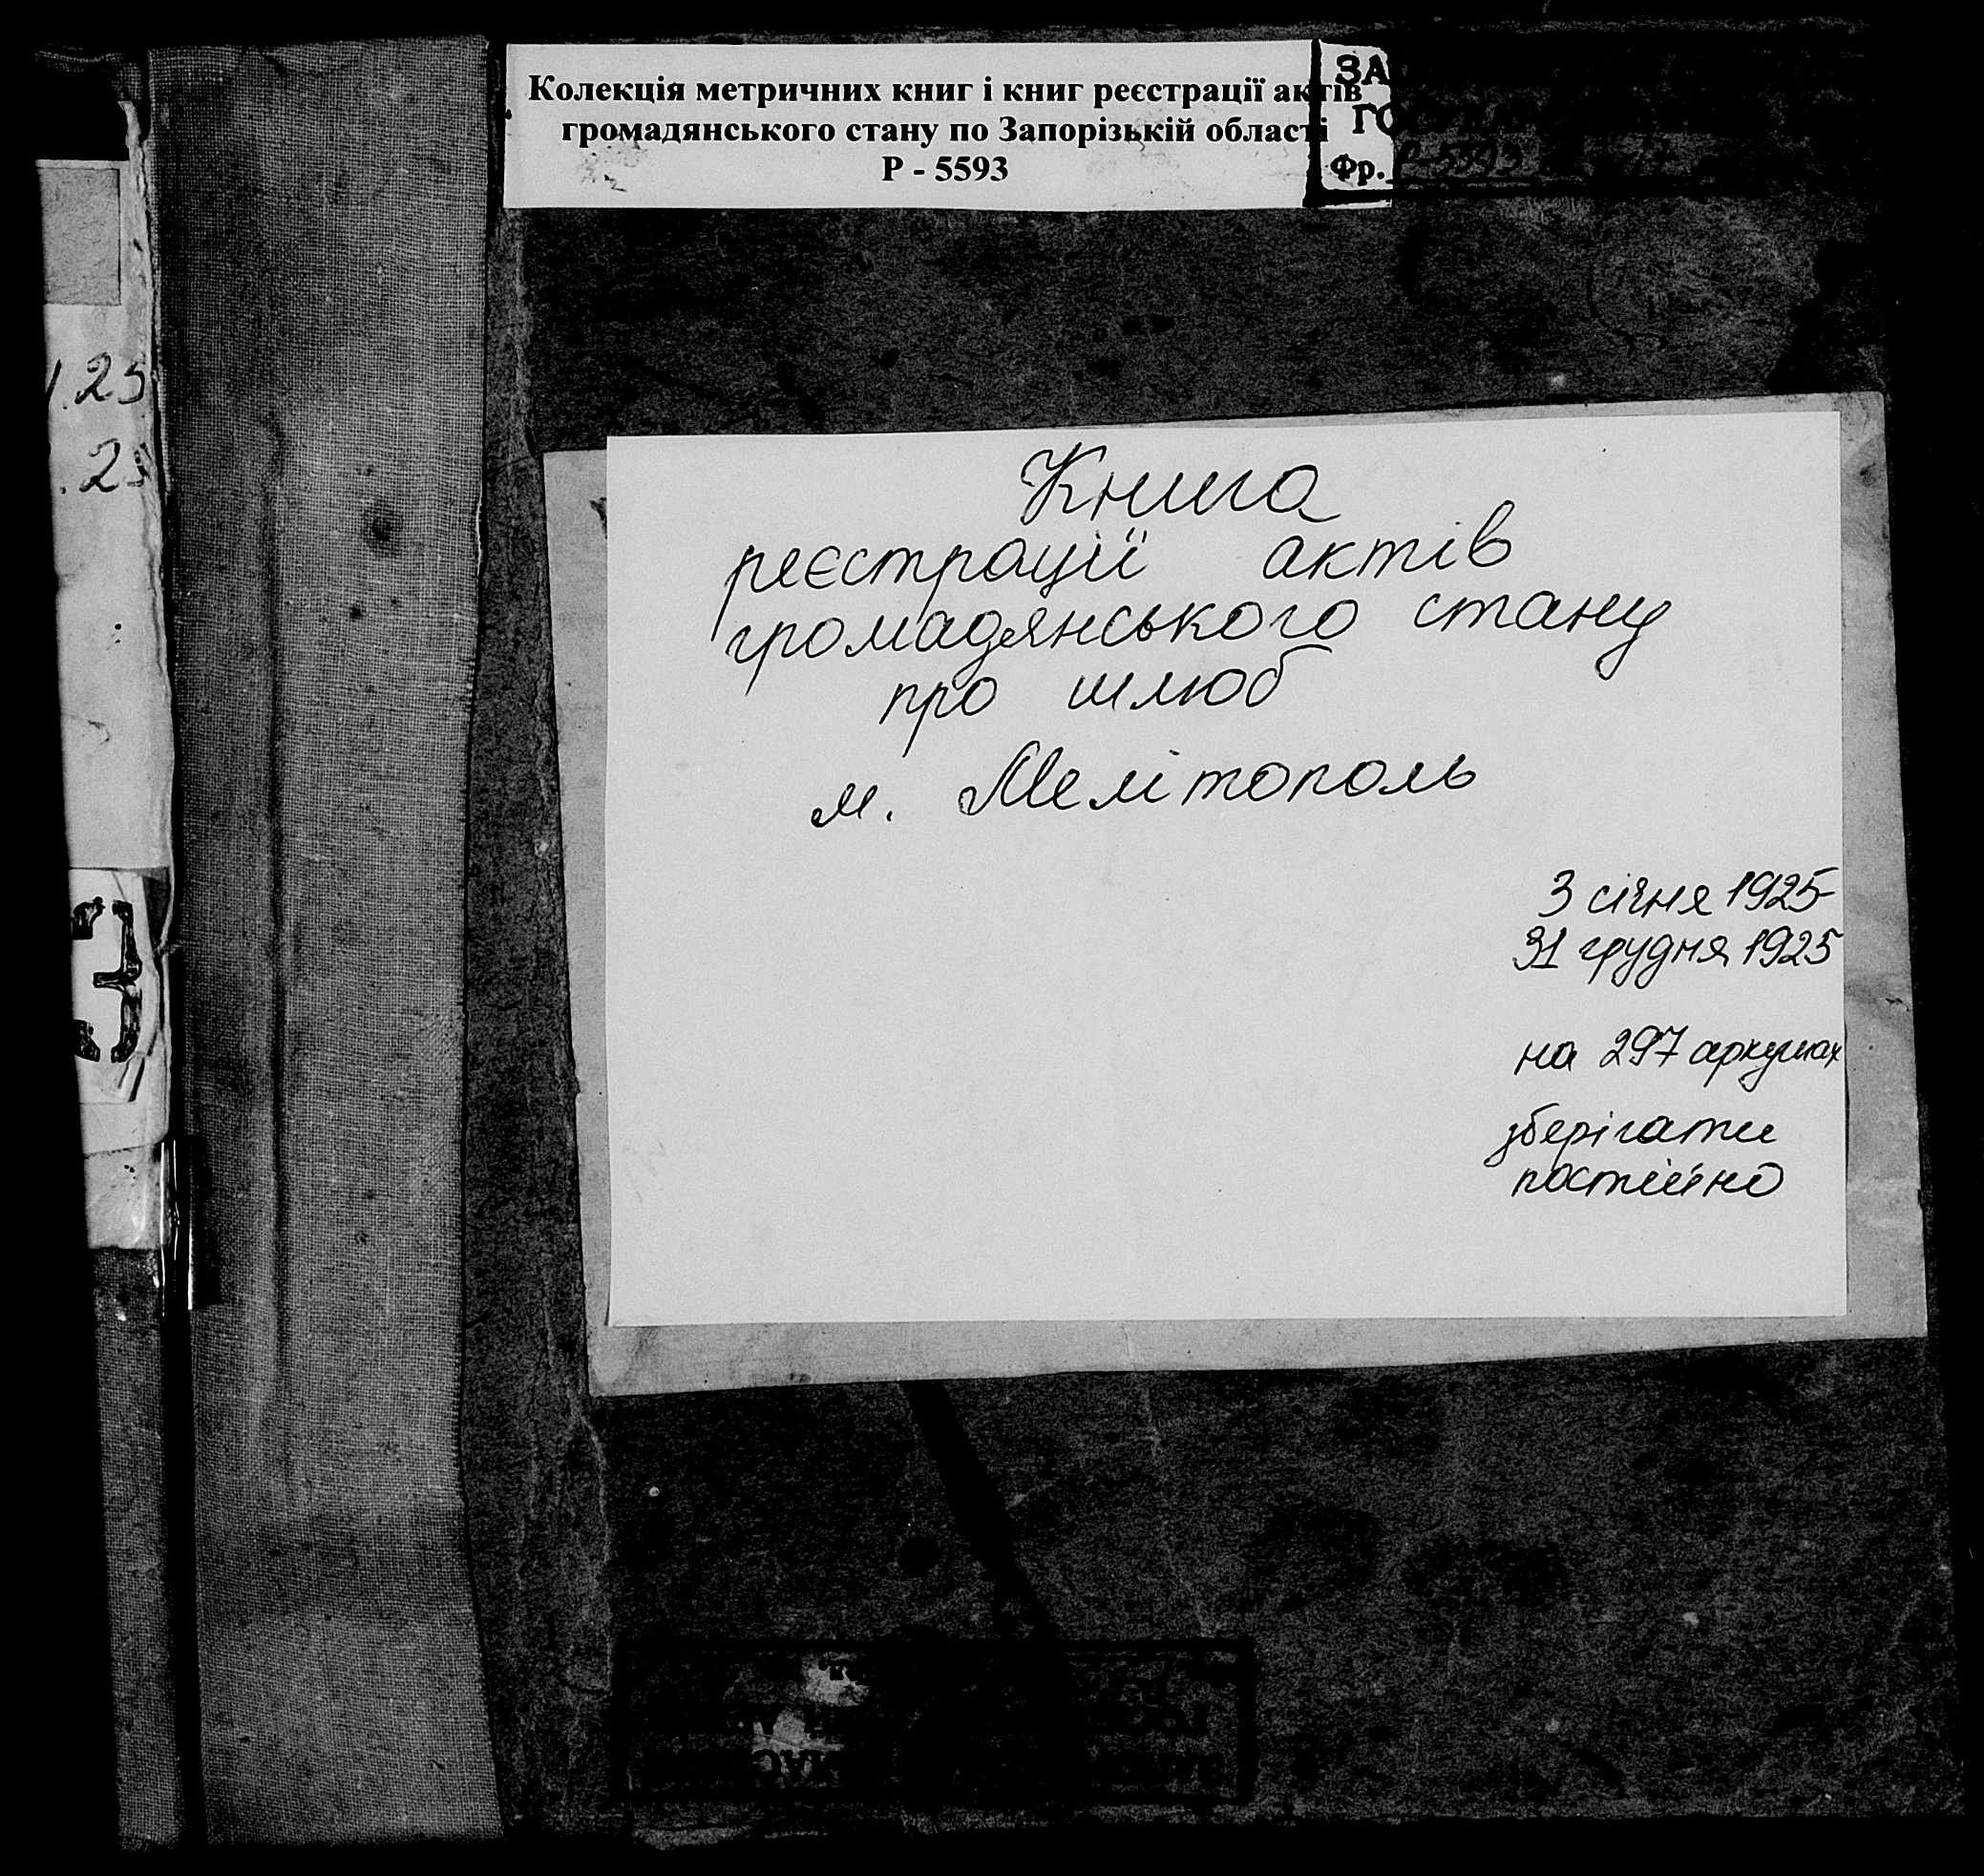 Колекція метричних книг і книг реєстрації актів
громадянського стану по Запорізькій області
Р - 5593
ЗА
ГО
Фр. Р-5593
.25
.25
Книга
реєстрації актів
громадянського стану
про шлюб
м. Мелітополь
3 січня 1925-
31 грудня 1925
на 297 аркушах
зберігати
постійно